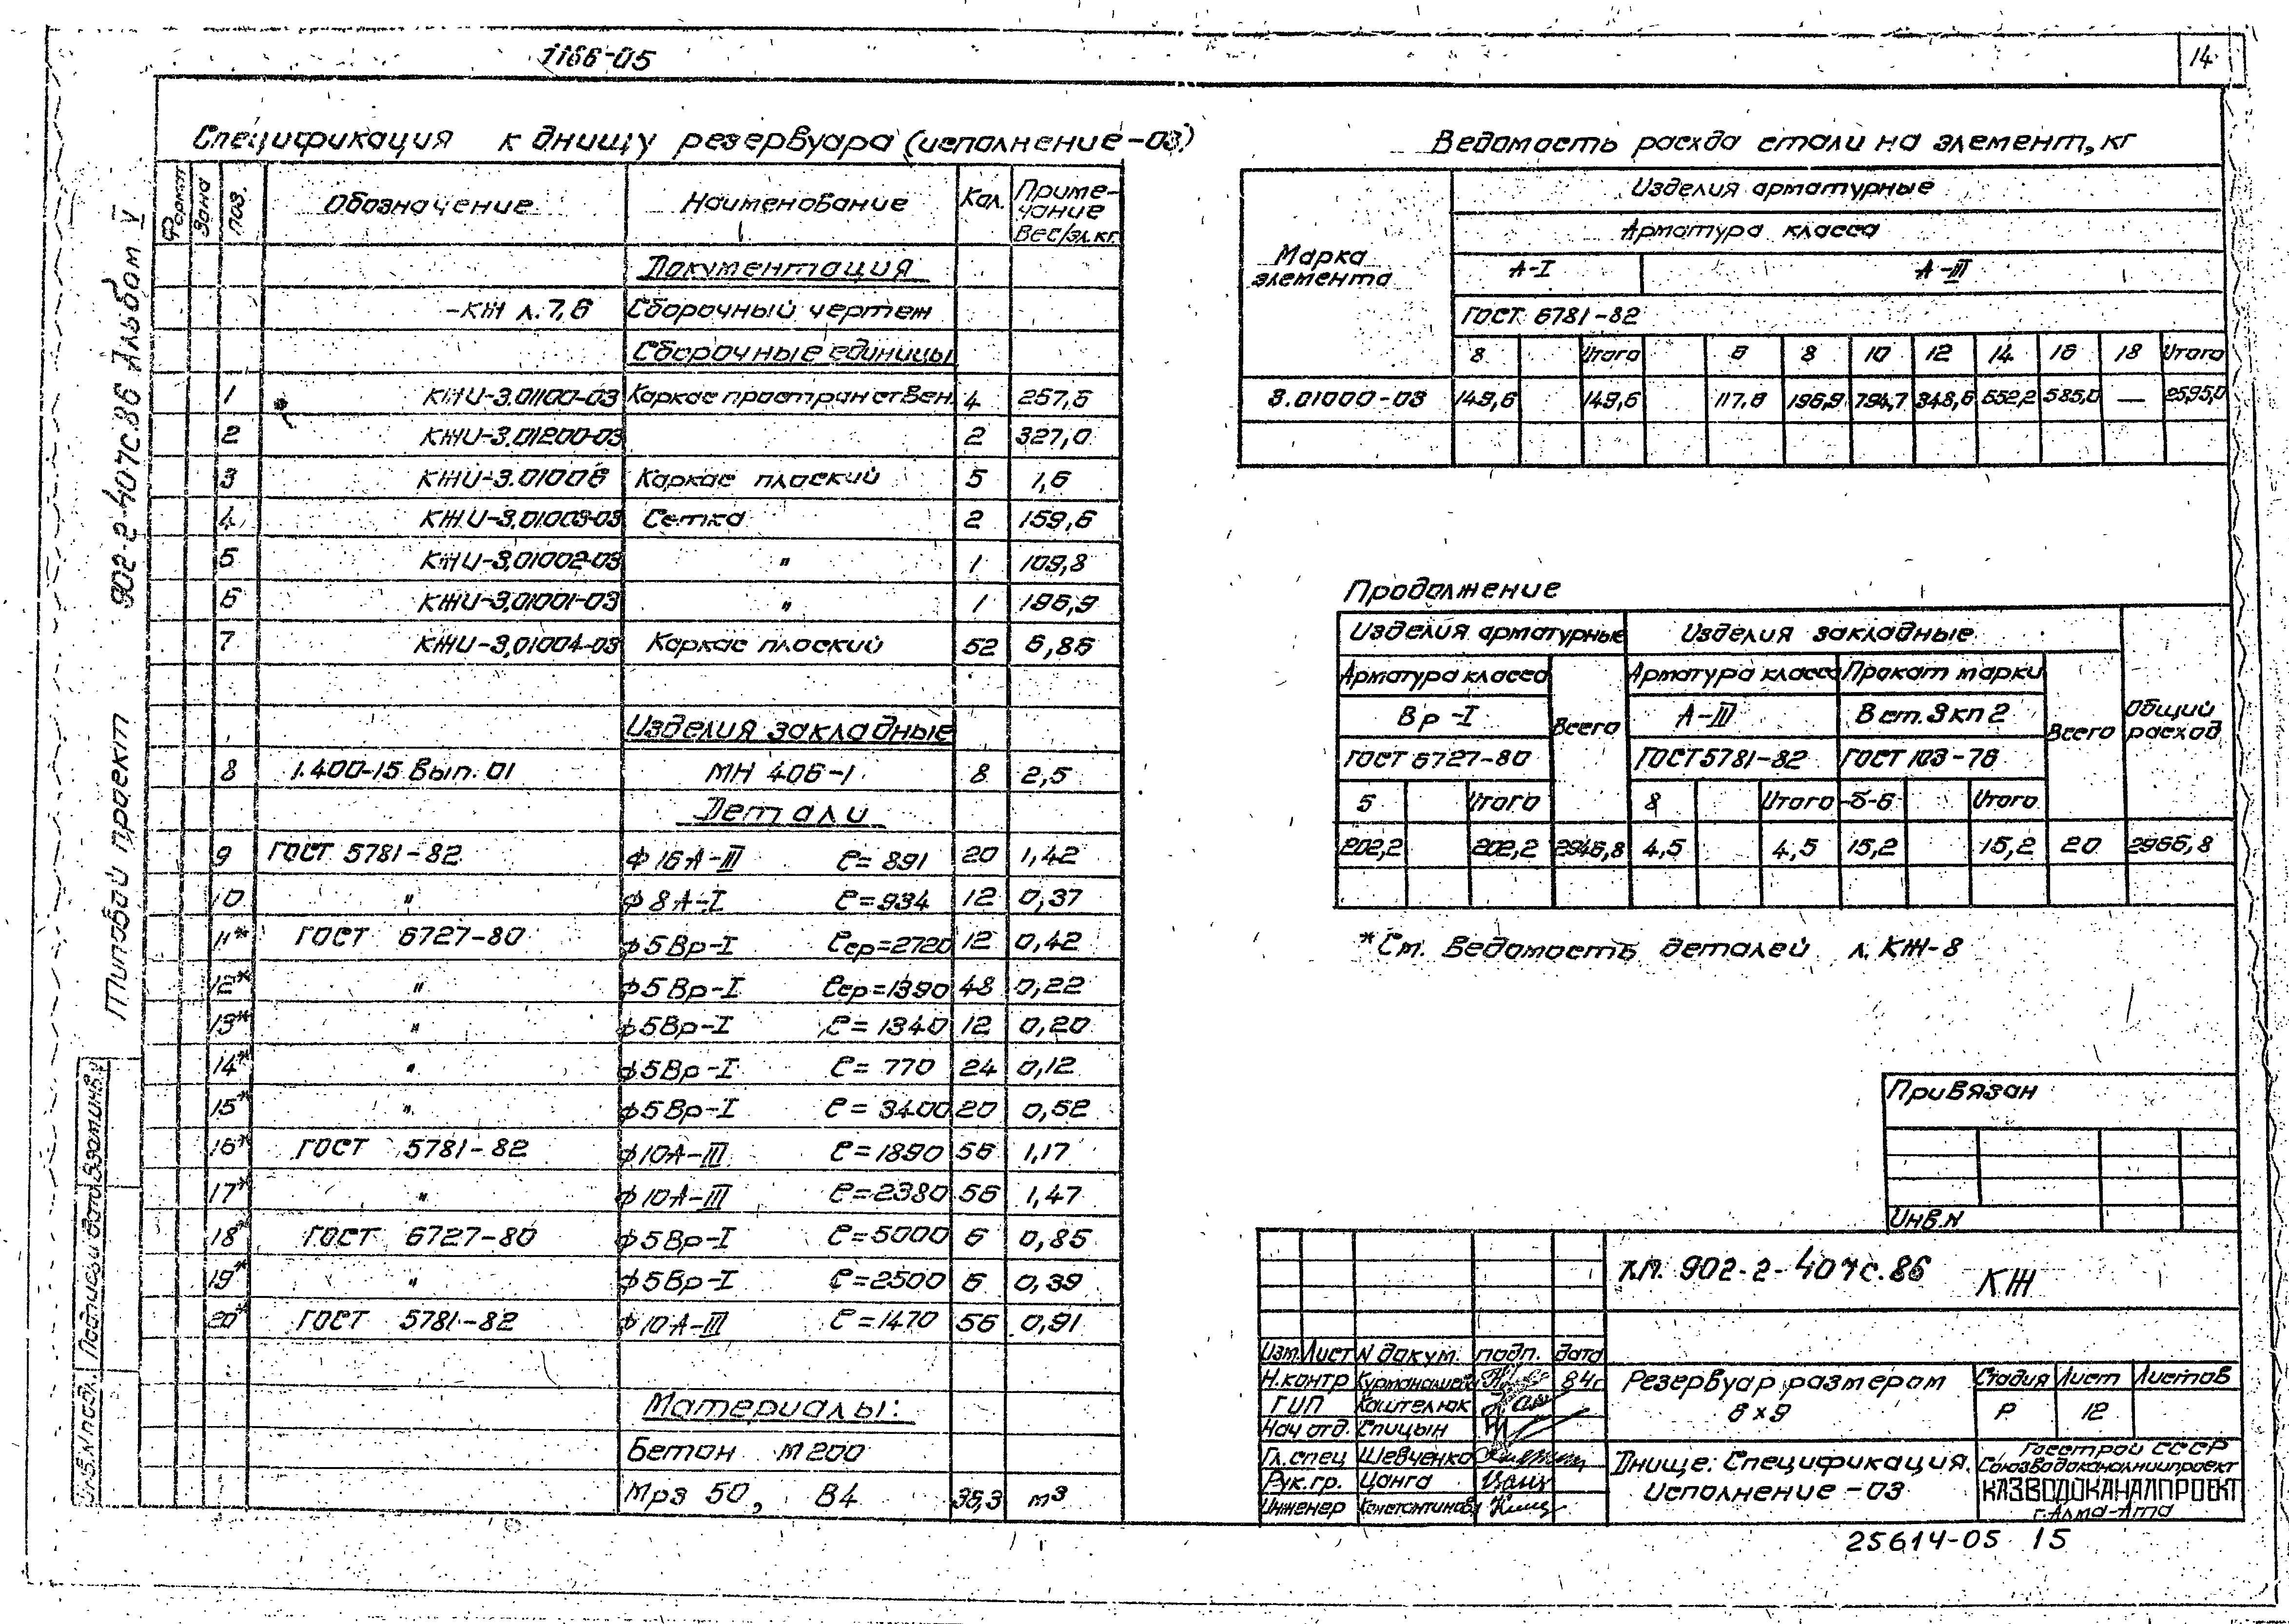 1166-05
14
Типовой проект 902-2-407с.86 Альбом V
Спецификация к днищу резервуара (исполнение-03)
Формат Зона Поз. Обозначение Наименование Кол. Приме-
чание
Вес/эл.кг
Документация
-КЖ л.7,6 Сборочный чертеж
Сборочные единицы
1 КЖИ-3.01100-03 Каркас пространствен. 4 257,6
2 КЖИ-3.01200-03 2 327,0
3 КЖИ-3.01006 Каркас плоский 5 1,6
4 КЖИ-3.01003-03 Сетка 2 159,6
5 КЖИ-3.01002-03 " 1 109,8
6 КЖИ-3.01001-03 " 1 196,9
7 КЖИ-3.01004-03 Каркас плоский 52 6,86
Изделия закладные
8 1.400-15 Вып.01 МН 406-1 8 2,5
Детали
9 ГОСТ 5781-82 ф16А-III ℓ=891 20 1,42
10 " ф8А-I ℓ=934 12 0,37
11* ГОСТ 6727-80 ф5Вр-I ℓср=2720 12 0,42
12* " ф5Вр-I ℓср=1390 48 0,22
13* " ф5Вр-I ℓ=1340 12 0,20
14* " ф5Вр-I ℓ=770 24 0,12
15* " ф5Вр-I ℓ=3400 20 0,52
16* ГОСТ 5781-82 ф10А-III ℓ=1890 56 1,17
17* " ф10А-III ℓ=2380 56 1,47
18* ГОСТ 6727-80 ф5Вр-I ℓ=5000 6 0,85
19* " ф5Вр-I ℓ=2500 6 0,39
20* ГОСТ 5781-82 ф10А-III ℓ=1470 56 0,91
Материалы:
Бетон М200
Мрз 50, В4 35,3 м3
Ведомость расхода стали на элемент, кг
Марка
элемента
Изделия арматурные
Арматура класса
А-I А-III
ГОСТ 5781-82
8 Итого 6 8 10 12 14 16 18 Итого
3.01000-03 149,6 149,6 117,6 196,9 794,7 348,6 552,2 585,0 — 2595,0
Продолжение
Изделия арматурные Изделия закладные Общий
расход
Арматура класса Всего Арматура класса Прокат марки Всего
Вр-I А-III Вст.3кп2
ГОСТ 6727-80 ГОСТ 5781-82 ГОСТ 103-76
5 Итого 8 Итого -δ-6 Итого
202,2 202,2 2946,8 4,5 4,5 15,2 15,2 20 2966,8
*См. Ведомость деталей л.КЖ-8
Привязан
Инв.N
Т.П. 902-2-407с.86 КЖ
Изм. Лист N докум. подп. дата
Н.контр 84г
ГИП Коштелюк
Нач отд. Спицын
Гл.спец Шевченко
Рук.гр. Цонга
Инженер Константинова
Резервуар размером
6х9
Стадия Лист Листов
Р 12
Днище. Спецификация.
Исполнение-03
Госстрой СССР
Союзводоканалниипроект
КАЗВОДОКАНАЛПРОЕКТ
г.Алма-Ата
Инв.N подл. Подпись и дата Взам.инв.N
25614-05 15